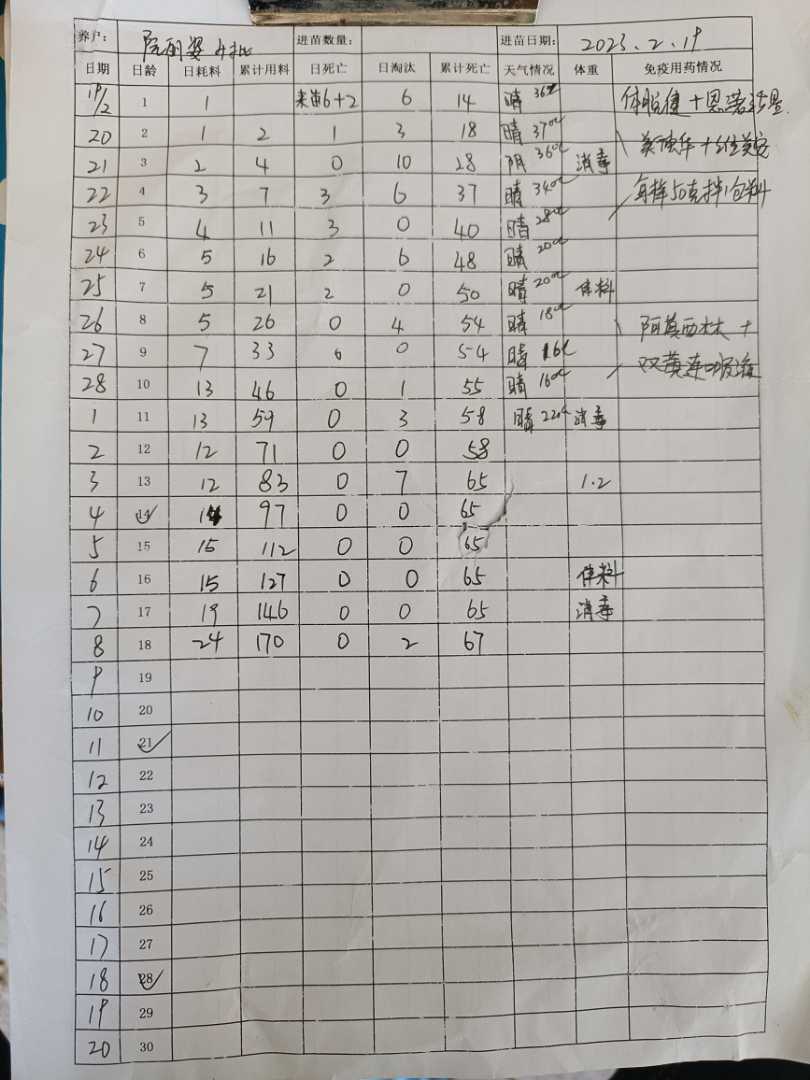 养户： 阮丽婴 4批 进苗数量： 进苗日期： 2023.2.19
日期 日龄 日耗料 累计用料 日死亡 日淘汰 累计死亡 天气情况 体重 免疫用药情况
19/2 1 1 来苗6+2 6 14 晴 36℃
20 2 1 2 1 3 18 晴 37℃
21 3 2 4 0 10 28 阴 36℃ 消毒
22 4 3 7 3 6 37 晴 34℃ 每样50克拌1包料
23 5 4 11 3 0 40 晴 28℃
24 6 5 16 2 6 48 晴 20℃
25 7 5 21 2 0 50 晴 20℃ 体料
26 8 5 26 0 4 54 晴 18℃ 阿莫西林 +
27 9 7 33 0 0 54 晴 16℃ 双黄连口服液
28 10 13 46 0 1 55 晴 16℃
1 11 13 59 0 3 58 晴 22℃ 消毒
2 12 12 71 0 0 58
3 13 12 83 0 7 65 1.2
4 14 14 97 0 0 65
5 15 15 112 0 0 65
6 16 15 127 0 0 65 体料
7 17 19 146 0 0 65 消毒
8 18 24 170 0 2 67
9 19
10 20
11 21
12 22
13 23
14 24
15 25
16 26
17 27
18 28
19 29
20 30